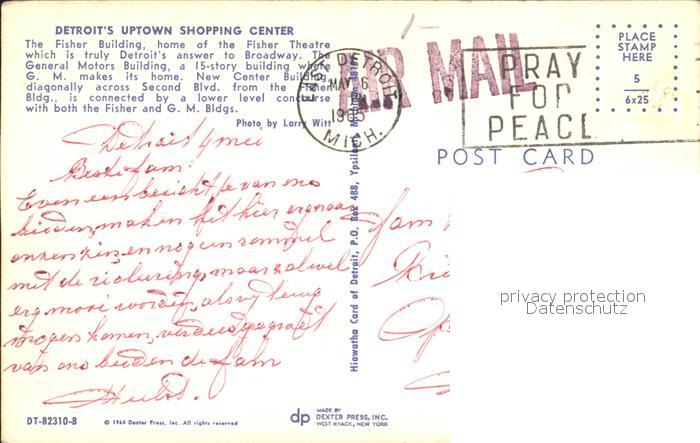 DETROIT'S UPTOWN SHOPPING CENTER
The Fisher Building, home of the Fisher Theatre
which is truly Detroit's answer to Broadway. The
General Motors Building, a 15-story building where
G. M. makes its home. New Center Building
diagonally across Second Blvd. from the
Bldg., is connected by a lower level concourse
with both the Fisher and G. M. Bldgs.
Photo by Larry Witt
AIR MAIL
DETROIT
MAY 6
MICH.
PRAY
FOR
PEACE
PLACE
STAMP
HERE
5
6x25
POST CARD
Detroit 4 mei
Beste fam.
Even een bericht je van ons
beiden, maken het hier
en nog een
met de maar zal wel
erg mooi worden, als wy terug
mogen komen, gegroet
van ons beiden de fam
fam
Hiawatha Card of Detroit, P.O. Box 488, Ypsilanti, Michigan 48197
privacy protection
Datenschutz
DT-82310-B
© 1964 Dexter Press, Inc. All rights reserved
dp
MADE BY
DEXTER PRESS, INC.
WEST NYACK, NEW YORK